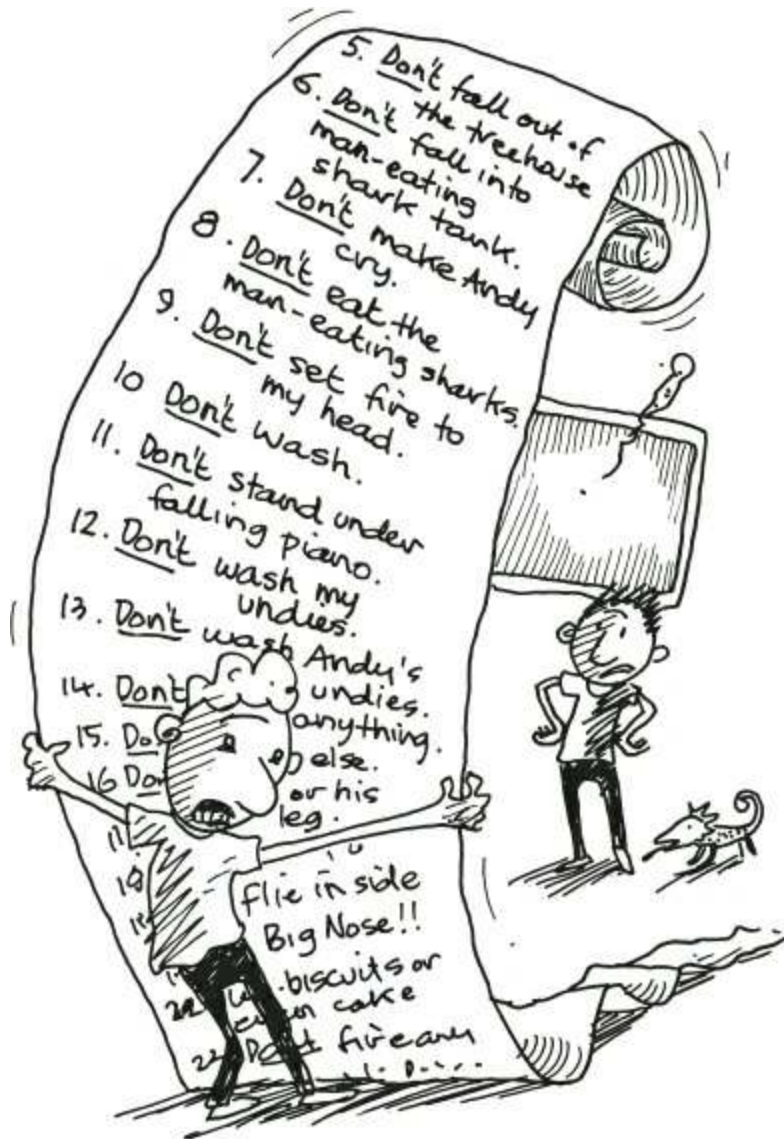 5. Don't fall out of
the treehouse
6. Don't fall into
man-eating
shark tank.
7. Don't make Andy
cry.
8. Don't eat the
man-eating sharks.
9. Don't set fire to
my head.
10 Don't wash.
11. Don't stand under
falling piano.
12. Don't wash my
undies.
13. Don't wash Andy's
undies.
14. Don't
anything.
15.
else.
16
or his
leg.
flie in side
Big Nose!!
biscuits or
cake
Don't fire any